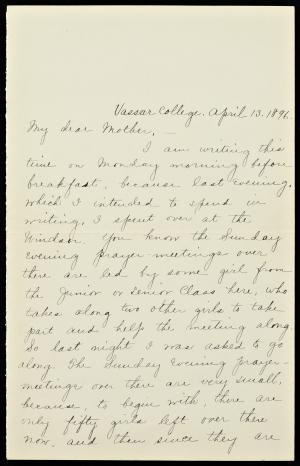 Vassar College. April 13. 1896.
My dear Mother, —
I am writing this
time on Monday morning before
breakfast, because last evening,
which I intended to spend in
writing, I spent over at the
Windsor. You know the Sunday
Evening prayer-meetings over
there are led by some girl from
the Junior or Senior Class here, who
takes along two other girls to take
part and help the meeting along.
So last night I was asked to go
along. The Sunday Evening prayer-
meetings over there are very small,
because, to begin with, there are
only fifty girls left over there
now, and then since they are